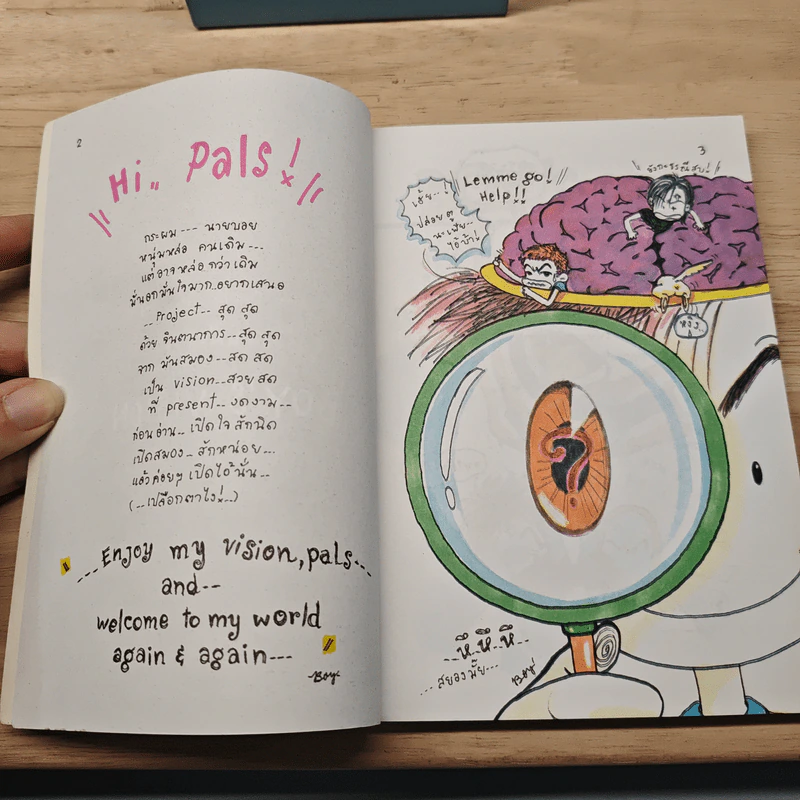 2
Hi,, Pals!
กระผม --- นายบอย
หนุ่มหล่อ คนเดิม ---
แต่อาจหล่อ กว่าเดิม
มั่นอกมั่นใจมาก..อยากเสนอ
.. Project -- สุด สุด
ด้วย จินตนาการ -- สุด สุด
จาก มันสมอง -- สด สด
เป็น vision -- สวย สด
ที่ present -- งดงาม --
ก่อนอ่าน -- เปิดใจ สักนิด
เปิดสมอง -- สักหน่อย ---
แล้วค่อยๆ เปิดไอ้นั่น --
(-- เปลือกตาไง! --)
Enjoy my vision, pals ---
and --
welcome to my world
again & again ---
Boy
3
Lemme go!
Help!!
เฮ้ย---!
ปล่อย ตู
ไอ้บ้า!
หึ หึ หึ
... สยองมั้ย ---
Boy